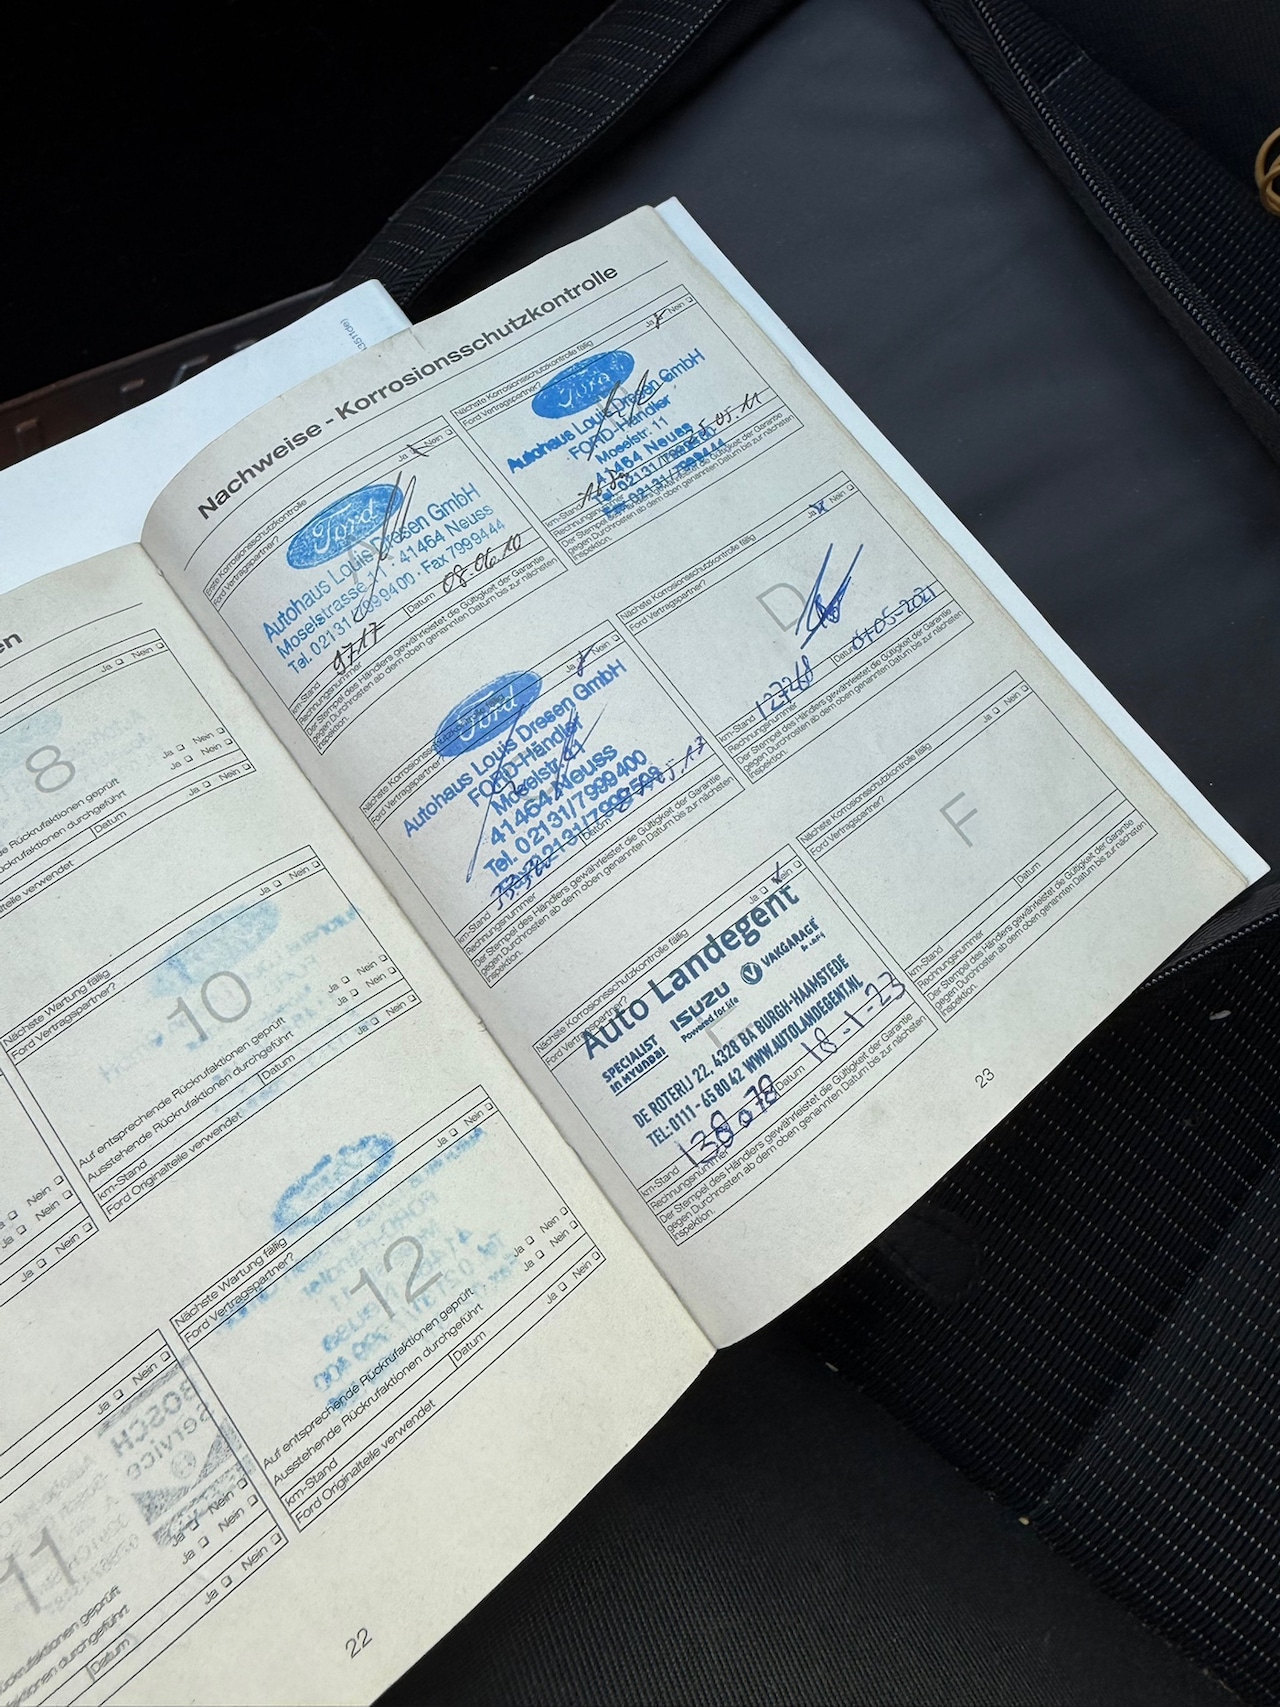 Nachweise - Korrosionsschutzkontrolle
Erste Korrosionsschutzkontrolle
Ford Vertragspartner?
Ja Nein
Ford
Autohaus Louis Dresen GmbH
Moselstrasse 11 · 41464 Neuss
Tel. 02131 / 7999400 · Fax 7999444
km-Stand
Datum 08.06.10
Rechnungsnummer
Der Stempel des Händlers gewährleistet die Gültigkeit der Garantie
gegen Durchrosten ab dem oben genannten Datum bis zur nächsten
Inspektion.
Nächste Korrosionsschutzkontrolle fällig
Ford Vertragspartner?
Ja Nein
Ford
Autohaus Louis Dresen GmbH
FORD-Händler
Moselstr. 11
41464 Neuss
Tel. 02131/7999400
Fax 02131/7999444
25.05.11
km-Stand
Rechnungsnummer
Der Stempel des Händlers gewährleistet die Gültigkeit der Garantie
gegen Durchrosten ab dem oben genannten Datum bis zur nächsten
Inspektion.
Nächste Korrosionsschutzkontrolle fällig
Ford Vertragspartner?
Ja Nein
Ford
Autohaus Louis Dresen GmbH
FORD-Händler
Moselstr. 11
41464 Neuss
Tel. 02131/7999400
km-Stand
Datum
Rechnungsnummer
Der Stempel des Händlers gewährleistet die Gültigkeit der Garantie
gegen Durchrosten ab dem oben genannten Datum bis zur nächsten
Inspektion.
Nächste Korrosionsschutzkontrolle fällig
Ford Vertragspartner?
Ja Nein
D
km-Stand
Datum
Rechnungsnummer
Der Stempel des Händlers gewährleistet die Gültigkeit der Garantie
gegen Durchrosten ab dem oben genannten Datum bis zur nächsten
Inspektion.
Nächste Korrosionsschutzkontrolle fällig
Ford Vertragspartner?
Ja Nein
Auto Landegent
SPECIALIST
IN HYUNDAI
ISUZU
Powered for life
VAKGARAGE
DE ROTERIJ 22, 4328 BA BURGH-HAAMSTEDE
TEL: 0111 - 65 80 42 WWW.AUTOLANDEGENT.NL
km-Stand 138.078
Datum 18-1-23
Rechnungsnummer
Der Stempel des Händlers gewährleistet die Gültigkeit der Garantie
gegen Durchrosten ab dem oben genannten Datum bis zur nächsten
Inspektion.
Nächste Korrosionsschutzkontrolle fällig
Ford Vertragspartner?
Ja Nein
F
km-Stand
Datum
Rechnungsnummer
Der Stempel des Händlers gewährleistet die Gültigkeit der Garantie
gegen Durchrosten ab dem oben genannten Datum bis zur nächsten
Inspektion.
23
8
Ja Nein
Ja Nein
Ja Nein
Ja Nein
Datum
Nächste Wartung fällig
Ford Vertragspartner?
Ja Nein
10
Auf entsprechende Rückrufaktionen geprüft
Ja Nein
Ausstehende Rückrufaktionen durchgeführt
Ja Nein
km-Stand
Datum
Ford Originalteile verwendet
Ja Nein
Nächste Wartung fällig
Ford Vertragspartner?
Ja Nein
12
Auf entsprechende Rückrufaktionen geprüft
Ja Nein
Ausstehende Rückrufaktionen durchgeführt
Ja Nein
km-Stand
Datum
Ford Originalteile verwendet
Ja Nein
11
Ja Nein
Ja Nein
Ja Nein
Ja Nein
Datum
22